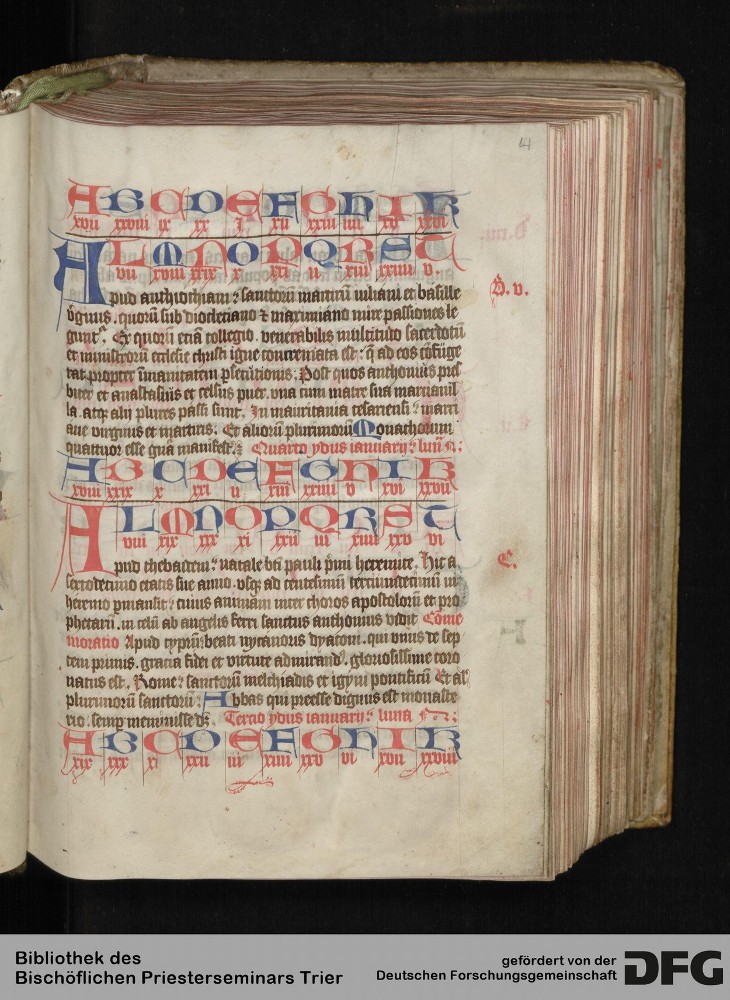 4
A B C D E F G H I K
xvii xxviii ix xx I xii xxiii iiii xv xxvi
L M N O P Q R S T
vii xviii xxix x xxi ii xiii xxiiii v
D. v.
Apud anthiochiam: sanctorū martirū iuliani et basille
v̓ginis. quorū sub diocleciano & maximiano mire passiones le
gunt᷑. Ex quorū etiā collegio. venerabilis multitudo sacerdotū
et ministrorū ecclesie christi igne concremata est: q̄ ad eos cōfuge
rat propter īmanitatem p̄secutionis. Post quos anthonius pres
biter et anastasius et celsus puer. vna cum matre sua marcianil
la. atqꝫ alij plures passi sunt. In mauritania cesariensi: marci
ane virginis et martiris. Et aliorū plurimorū Monachorum
quattuor esse
Quarto ydus ianuarij: lun
A B C D E F G H I K
xviii xxix x xxi ii xiii xxiiii v xvi xxvii
L M N O P Q R S T
viii xix xxx xi xxii iii xiiii xxv vi
E.
Apud thebaidem: natale bt̄i pauli p̄mi heremite. Hic a
sextodecimo etatis sue anno. vsqꝫ ad centesimū terciumdecimū in
heremo p̄mansit: cuius animam inter choros apostolorū et pro
phetarū. in celū ab angelis ferri sanctus anthonius vidit Cōme
moratio Apud cyprū: beati nycanoris dyaconi. qui vnus de sep
tem primis. gracia fidei et virtute admirand᷒. gloriosissime coro
natus est. Rome: sanctorū melchiadis et igyni pontificū Et al᷑
plurimorū sanctorū: Abbas qui preesse dignus est monaste
rio. semp̱ meminisse dꝫ. Tercio ydus ianuarij: luna
A B C D E F G H I K
xix xxx xi xxii iii xiiii xxv vi xvii xxviii
Bibliothek des
Bischöflichen Priesterseminars Trier
gefördert von der
Deutschen Forschungsgemeinschaft
DFG